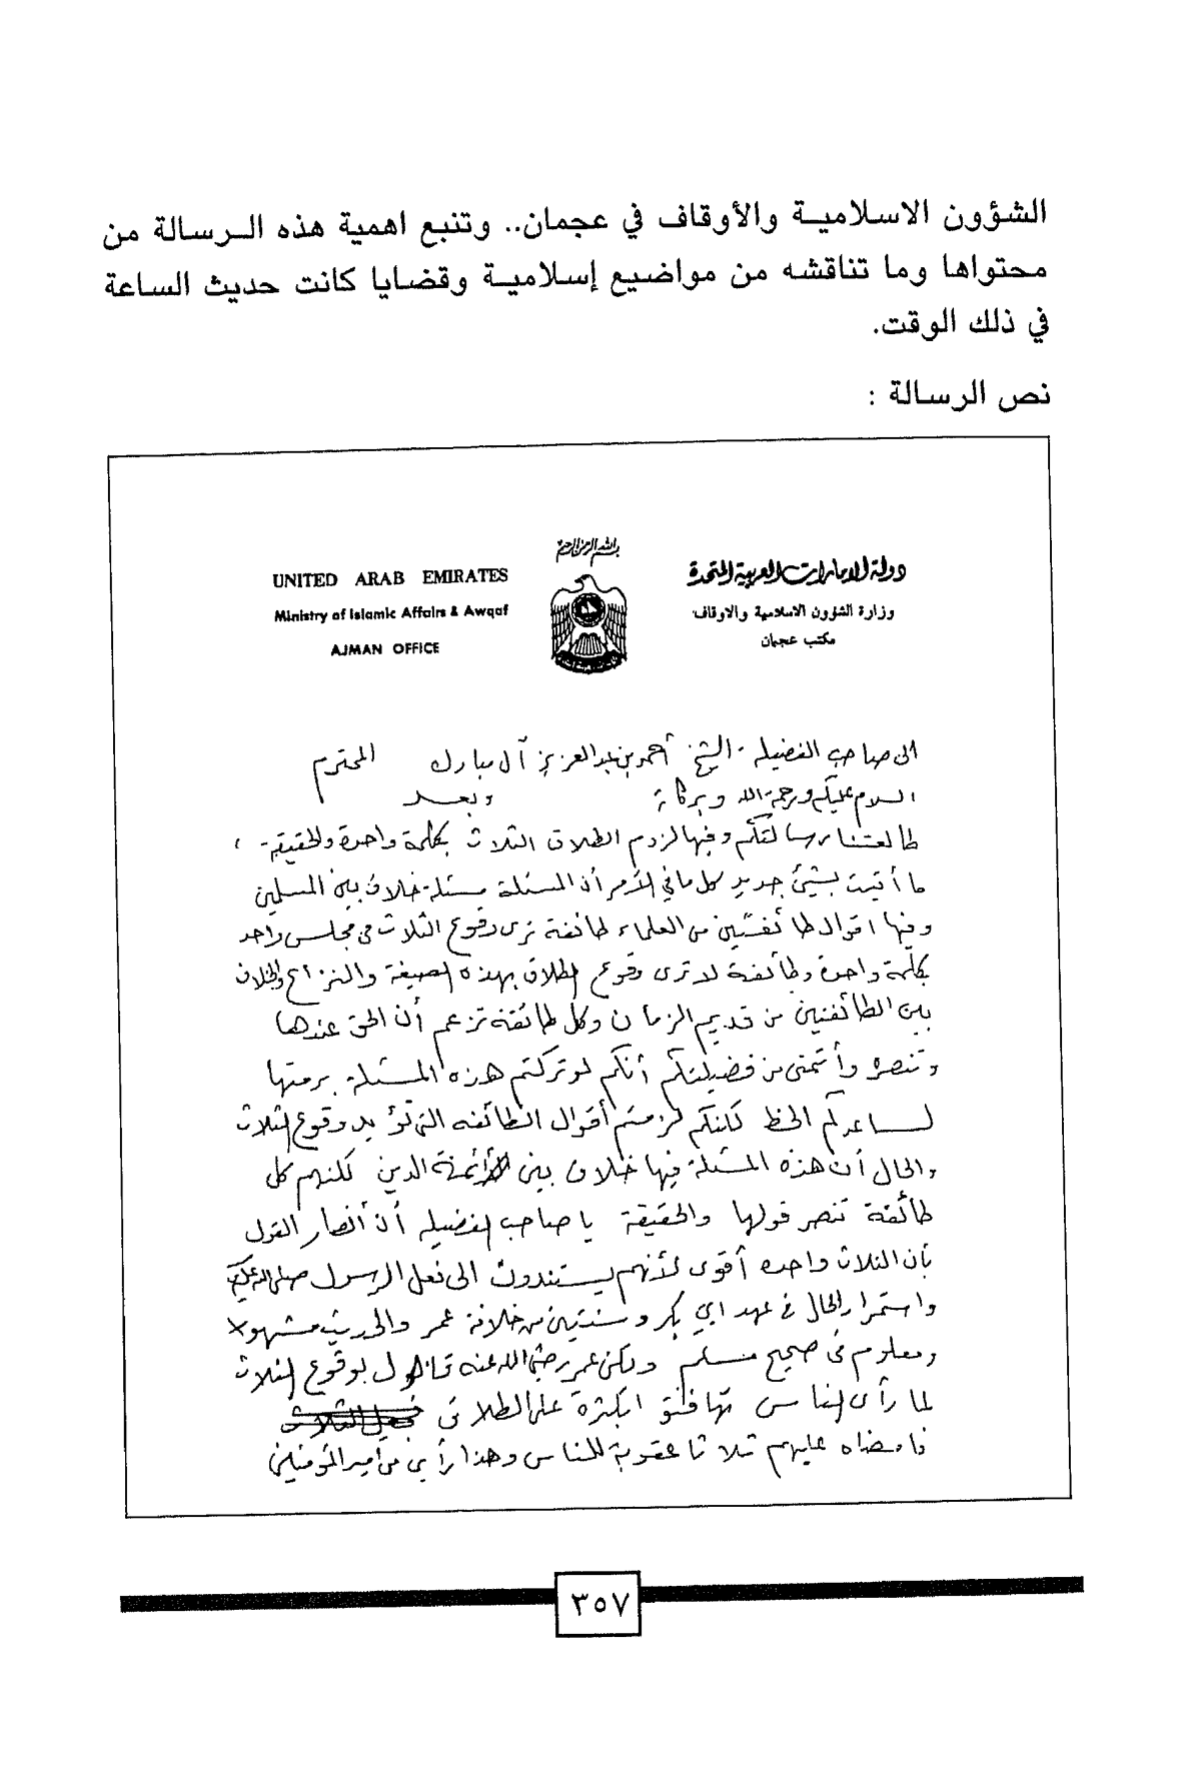 الشؤون الاسلامية والأوقاف في عجمان.. وتنبع اهمية هذه الرسالة من
محتواها وما تناقشه من مواضيع إسلامية وقضايا كانت حديث الساعة
في ذلك الوقت.
نص الرسالة :
بسم الله الرحمن الرحيم
دولة الامارات العربية المتحدة
وزارة الشؤون الاسلامية والاوقاف
مكتب عجمان
UNITED ARAB EMIRATES
Ministry of Islamic Affairs & Awqaf
AJMAN OFFICE
الى صاحب الفضيلة الشيخ أحمد بن عبد العزيز آل مبارك المحترم
السلام عليكم ورحمة الله وبركاته وبعد
طالعتنا رسالتكم وفيها لزوم الطلاق الثلاث بكلمة واحدة والحقيقة
ما أتيت بشيء جديد كل ما في الأمر أن المسئلة مسئلة خلاف بين المسلمين
وفيها اقوال طائفتين من العلماء طائفة ترى وقوع الثلاث في مجلس واحد
بكلمة واحدة وطائفة لا ترى وقوع الطلاق بهذه الصيغة والنزاع والخلاف
بين الطائفتين من قديم الزمان وكل طائفة تزعم أن الحق عندها
وتنصره وأتمنى من فضيلتكم أنكم لو تركتم هذه المسئلة برمتها
لساعدكم الحظ لكنكم لزمتم أقوال الطائفه التى تؤيد وقوع الثلاث
والحال أن هذه المسئلة فيها خلاف بين أئمة الدين لكنهم كل
طائفة تنصر قولها والحقيقة يا صاحب الفضيله أن أنصار القول
بأن الثلاث واحده أقوى لأنهم يستندون الى فعل الرسول صلى الله عليه
واستمرار الحال في عهد ابي بكر وسنتين من خلافة عمر والحديث مشهور
ومعلوم في صحيح مسلم ولكن عمر رضي الله عنه قال بوقوع الثلاث
لما رأى الناس تهافتو بكثرة على الطلاق
فامضاه عليهم ثلاثا عقوبة للناس وهذا رأي من أمير المؤمنين
٣٥٧